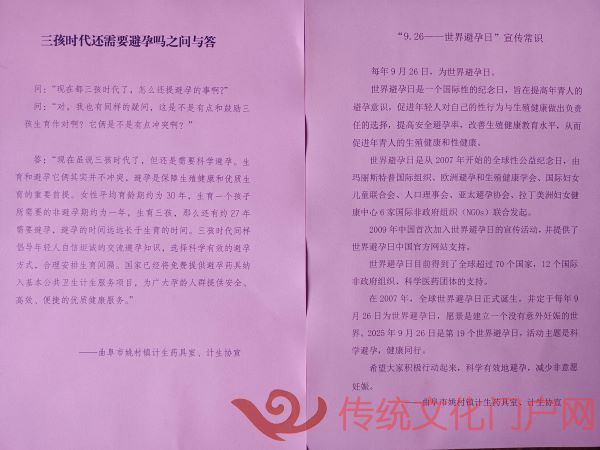 三孩时代还需要避孕吗之问与答
问：“现在都三孩时代了，怎么还提避孕的事啊?”
问：“对，我也有同样的疑问，这是不是有点和鼓励三
孩生育作对啊？它俩是不是有点冲突啊？”
答：“现在虽说三孩时代了，但还是需要科学避孕。生
育和避孕它俩其实并不冲突，避孕是保障生殖健康和优质生
育的重要前提。女性平均有育龄期约为 30 年，生育一个孩子
所需要的非避孕期约为一年，生育三孩，那么还有约 27 年
需要避孕，避孕的时间远远长于生育的时间。三孩时代同样
倡导年轻人自信坦诚的交流避孕知识，选择科学有效的避孕
方式，合理安排生育间隔。国家已经将免费提供避孕药具纳
入基本公共卫生计生服务项目，为广大孕龄人群提供安全、
高效、便捷的优质健康服务。”
——曲阜市姚村镇计生药具室、计生协宣
“9.26——世界避孕日”宣传常识
每年 9 月 26 日，为世界避孕日。
世界避孕日是一个国际性的纪念日，旨在提高年青人的
避孕意识，促进年轻人对自己的性行为与生殖健康做出负责
任的选择，提高安全避孕率，改善生殖健康教育水平，从而
促进年青人的生殖健康和性健康。
世界避孕日是从 2007 年开始的全球性公益纪念日，由
玛丽斯特普国际组织、欧洲避孕和生殖健康学会、国际妇女
儿童联合会、人口理事会、亚太避孕协会、拉丁美洲妇女健
康中心 6 家国际非政府组织（NGOs）联合发起。
2009 年中国首次加入世界避孕日的宣传活动，并提供了
世界避孕日中国官方网站支持。
世界避孕日目前得到了全球超过 70 个国家，12 个国际
非政府组织、科学医药团体的支持。
在 2007 年，全球世界避孕日正式诞生，并定于每年 9
月 26 日为世界避孕日，愿景是建立一个没有意外妊娠的世
界。2025 年 9 月 26 日是第 19 个世界避孕日，活动主题是科
学避孕，健康同行。
希望大家积极行动起来，科学有效地避孕，减少非意愿
妊娠。
——曲阜市姚村镇计生药具室、计生协宣
传统文化门户网